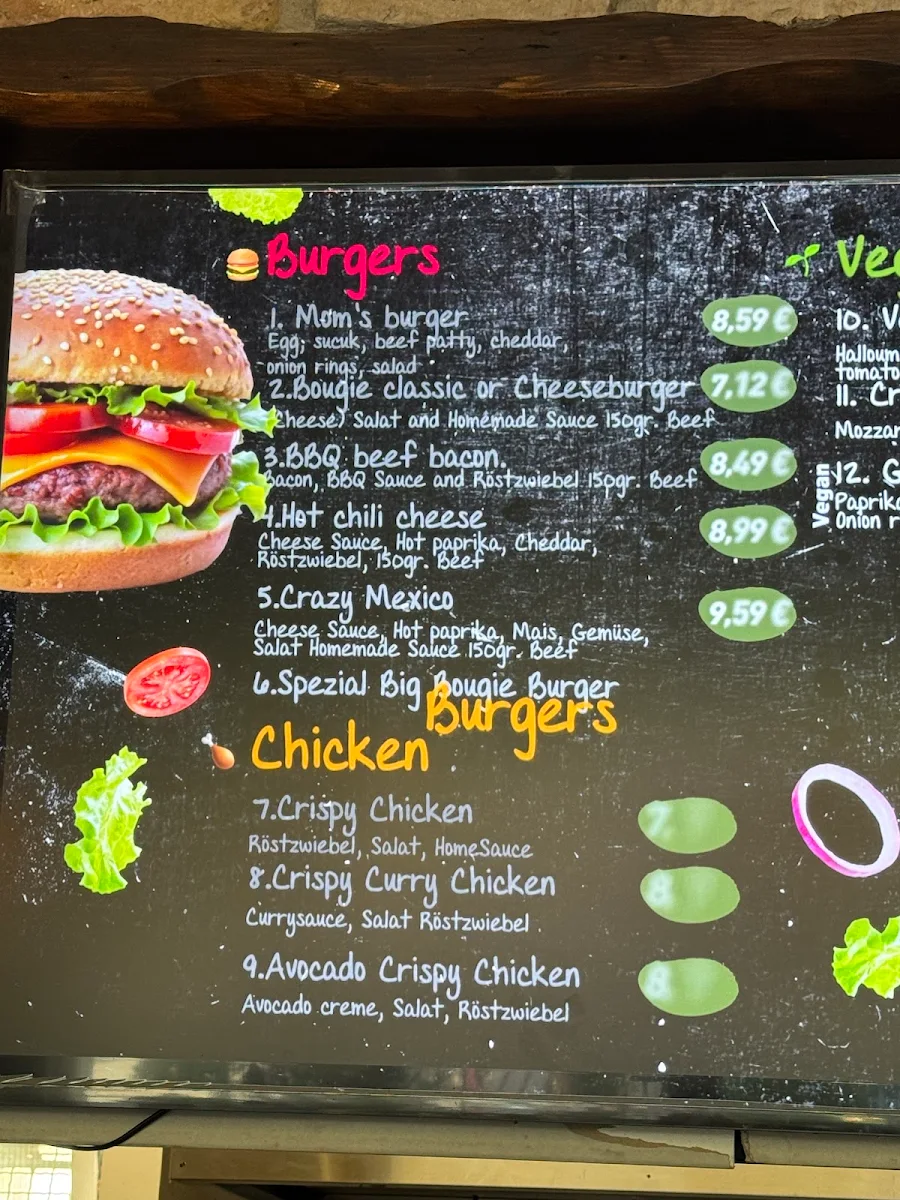 Burgers
1. Mom's burger 8,59 €
Egg, sucuk, beef patty, cheddar,
onion rings, salad
2.Bougie classic or Cheeseburger 7,12 €
Cheese) Salat and Homemade Sauce 150gr. Beef
3.BBQ beef bacon. 8,49 €
Bacon, BBQ Sauce and Röstzwiebel 150gr. Beef
4.Hot chili cheese 8,99 €
Cheese Sauce, Hot paprika, Cheddar,
Röstzwiebel, 150gr. Beef
5.Crazy Mexico 9,59 €
Cheese Sauce, Hot paprika, Mais, Gemüse,
Salat Homemade Sauce 150gr. Beef
6.Spezial Big Bougie Burger
Chicken Burgers
7.Crispy Chicken 7
Röstzwiebel, Salat, HomeSauce
8.Crispy Curry Chicken 8
Currysauce, Salat Röstzwiebel
9.Avocado Crispy Chicken 8
Avocado creme, Salat, Röstzwiebel
10.
tomato
11.
12. G
Vegan
Paprika
Onion